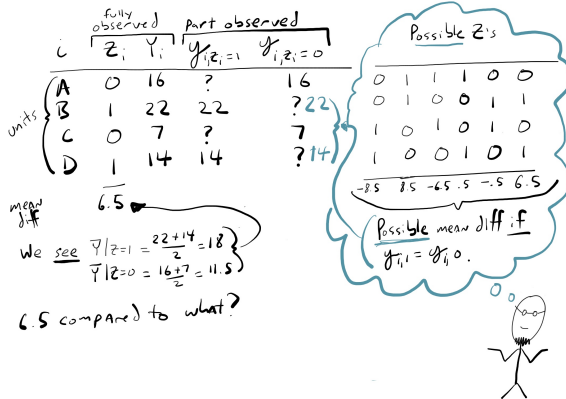 fully observed part observed
i Zi Yi yi,zi=1 yi,zi=0
A 0 16 ? 16
B 1 22 22 ? 22
C 0 7 ? 7
D 1 14 14 ? 14
units
6.5
mean diff
We see Y|Z=1 = 22+14/2 = 18
Y|Z=0 = 16+7/2 = 11.5
6.5 compared to what?
Possible Z's
0 1 1 1 0 0
0 1 0 0 1 1
1 0 1 0 1 0
1 0 0 1 0 1
-8.5 8.5 -6.5 .5 -.5 6.5
Possible mean diff if
yi,1 = yi,0.